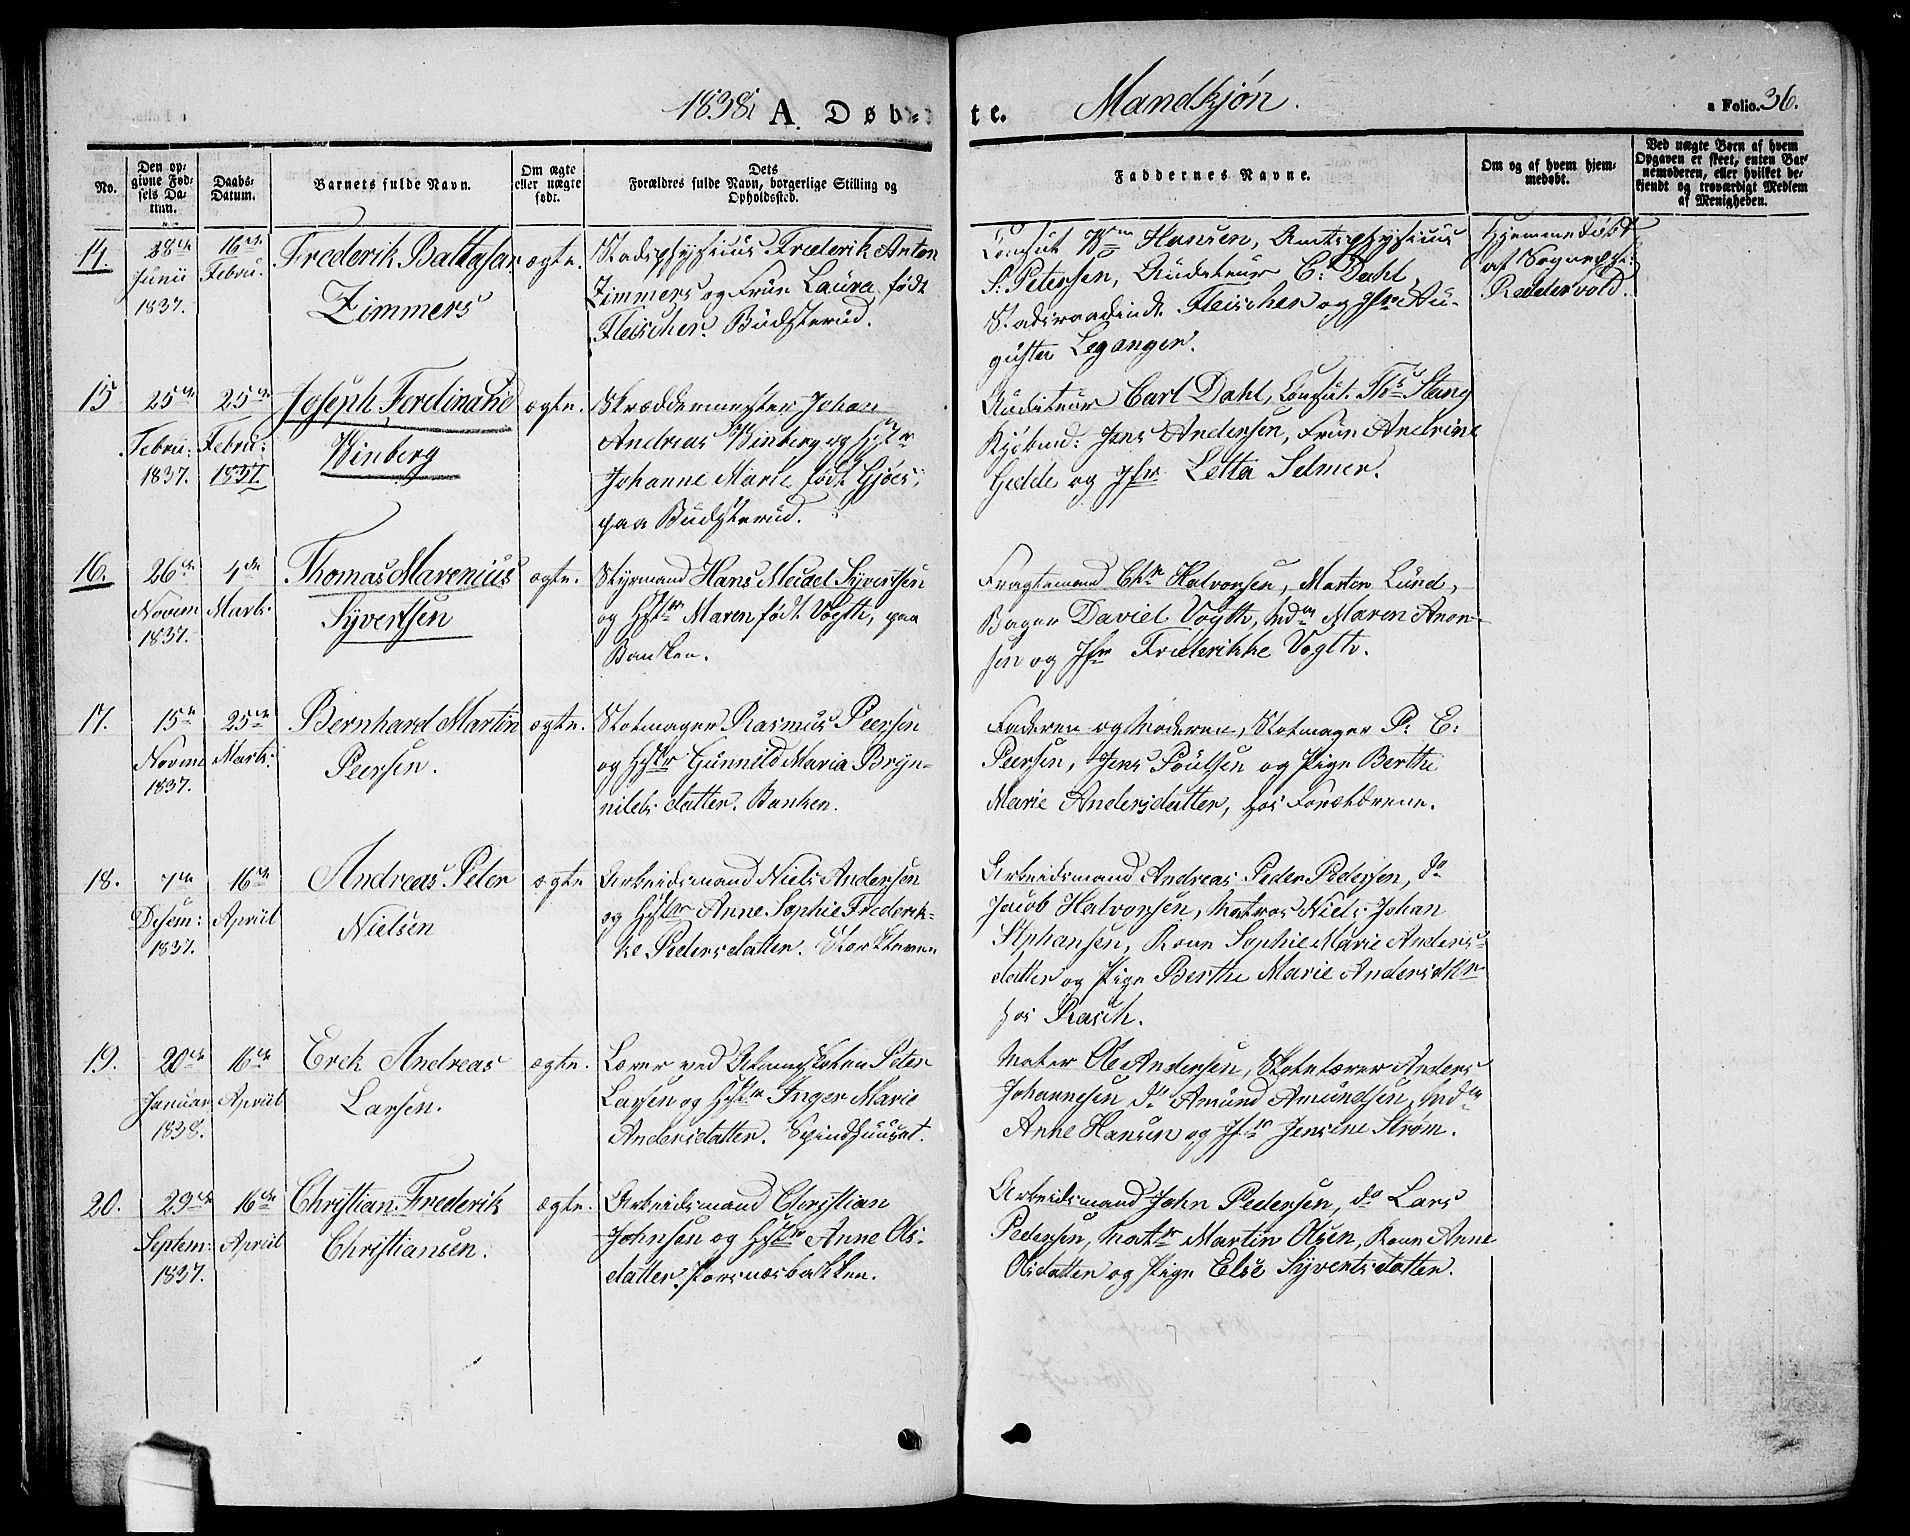 1838. A. Døb-
te. Mandkjøn.
a Folio. 36.
No.
Den op-
givne Fød-
sels Da-
tum.
Daabs-
Datum.
Barnets fulde Navn.
Om ægte
eller uægte
født.
Dets
Forældres fulde Navn, borgerlige Stilling og
Opholdssted.
Faddernes Navne.
Om og af hvem hjem-
medøbt.
Ved uægte Børn af hvem
Opgaven er skeet, enten Bar-
nemoderen, eller hvilket be-
kjendt og troværdigt Medlem
af Menigheden.
14.
28de
Junii
1837.
16de
Febru.
Frederik Baltasar
Zimmers
ægte.
Stadsphysicus Frederik Anton
Zimmers og Frue Laura født
Fleischer. Budsterud.
Consul Wm Hansen, Amtsphysicus
S. Petersen, Auditeur C. Dahl,
Stadsraadinde Fleischer og Jfr Au-
gusta Leganger.
Hjemmedøbt
af Sognepr:
Reddervold.
15
25de
Febru:
1837.
25de
Febru:
1837.
Joseph Ferdinand
Winberg
ægte.
Skræddermester Johan
Andreas Winberg og Hstr
Johanne Marie født Gjøes,
paa Budsterud.
Auditeur Carl Dahl, Consul Ths Stang
Kjøbmd: Jens Andersen, Frue Andrine
Gedde og Jfr Letta Selmer.
16.
26de
Novem
1837.
4de
Marts
Thomas Marenius
Syvertsen
ægte.
Styrmand Hans Meidel Syvertsen
og Hstr Maren født Vogth, paa
Banken.
Fragtemand Chr Halvorsen, Morten Lund,
Bager David Vogth, Md Maren Aron-
sen og Jfr Frederikke Vogth.
17.
15de
Novem
1837.
25de
Marts:
Bernhard Martin
Peersen.
ægte.
Slotmager Rasmus Peersen
og Hstr Gunnild Maria Bryn-
nilds datter. Banken.
Faderen og Moderen, Slotmager P. E.
Peersen, Jens Poulsen og Pige Berthe
Marie Andersdatter, hos Forældrene.
18.
7de
Desem:
1837.
16de
April
Andreas Peter
Nielsen
ægte
Arbeidsmand Niels Andersen
og Hstr Anne Sophie Frederik-
ke Pedersdatter.
Arbeidsmand Andreas Peder Pedersen, do
Jacob Halvorsen, Matros Niels Johan
Stphansen, Kone Sophie Marie Anders-
datter og Pige Berthe Marie Andersdttr
hos Rasch.
19.
20de
Januar
1838.
16de
April
Erek Andreas
Larsen.
ægte.
Lærer ved Almueskolen Peter
Larsen og Hstr Inger Marie
Andersdatter. Spindhuuset.
Maler Ole Andersen, Skolelærer Anders
Johannesen do Amund Amundsen, Md
Anne Hansen og Jfr Jensine Strøm.
20.
29de
Septem:
1837.
16de
April
Christian Frederik
Christiansen.
ægte.
Arbeidsmand Christian
Johnsen og Hstr Anne Ols-
datter, Porsnæsbakken.
Arbeidsmand John Pedersen, do Lars
Pedersen, Matr Martin Olsen, Kone Anne
Olsdatter og Pige Else Syvertsdatter.